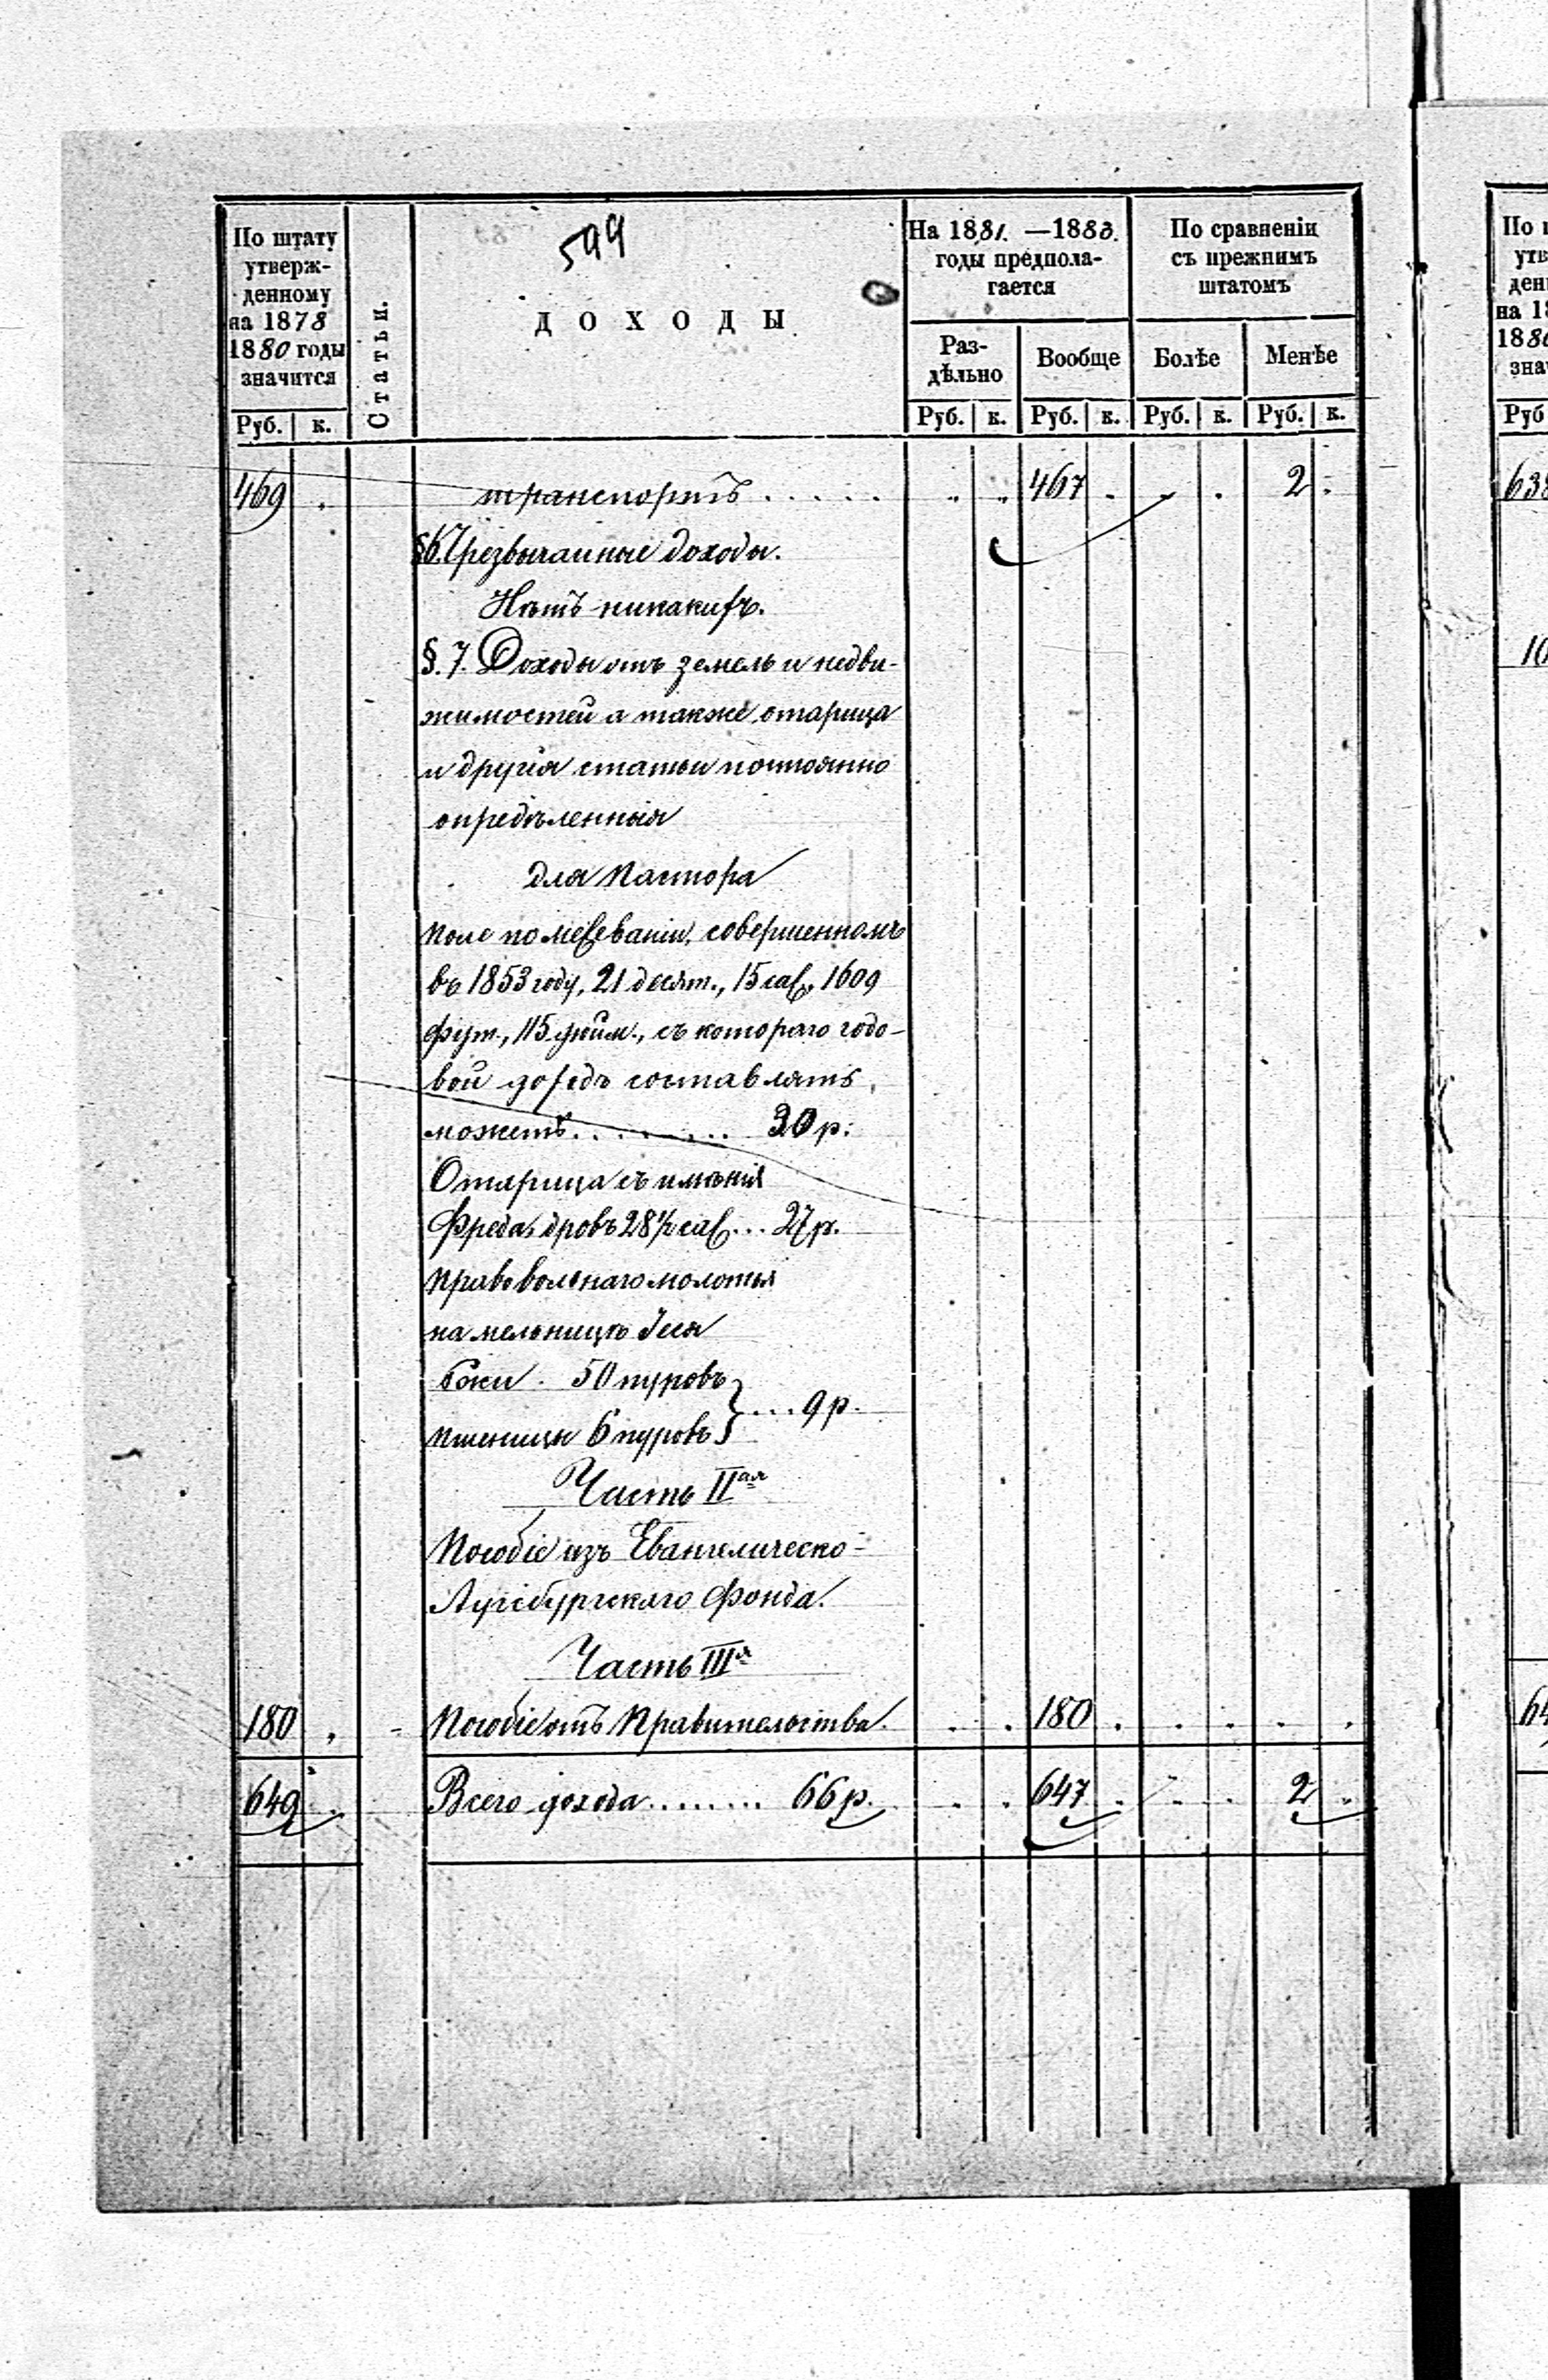 По штату
утверж-
денному
на 1878
1880 годы
значится
Руб. к.
Статьи.
599
ДОХОДЫ
На 1881. —1883.
годы предпола-
гается
Раз-
дѣльно
Вообще
Руб. к. Руб. к.
По сравненіи
съ прежнимъ
штатомъ
Болѣе
Менѣе
Руб. к. Руб. к.
469 . транспортъ . . . . . . . 467 . . . 2 .
§6. Чрезвычайные доходы.
Нѣтъ никакихъ.
§. 7. Доходы отъ земель и недви-
жимостей а также отарица
и другія статьи постоянно
опредѣленныя
для Пастора
Поле по межеваніи, совершенномъ
въ 1853 году, 21 десят., 15 саж. 1609
фут., 115 дюйм., съ котораго годо-
вой доходъ составлять
можетъ. . . . . . . . . 30 р.
Отарица съ имѣнія
Фреда, дровъ 28½ саж. . . 27 р.
Право вольнаго молотья
на мельницѣ Іеся
50 пуровъ
пшеницы 6 пуровъ } . . . 9 р.
Часть II ая
Пособіе изъ Евангелическо-
Аугсбургскаго Фонда.
Часть III я
180 . - Пособіе отъ Правительства. . . 180 . . . . .
649 . Всего дохода . . . . . . . . 66 р. . . 647 . . . 2 .
По
утв
ден
на 1
188
зна
Руб
638
10
64